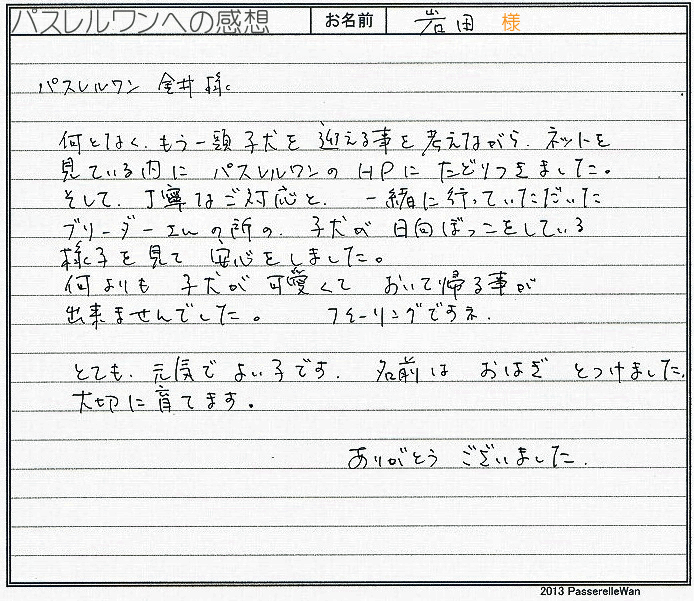 パスレルワンへの感想 お名前 岩田 様
パスレルワン 金井様
何となく、もう一頭子犬を迎える事を考えながら、ネットを
見ている内に パスレルワンの HPに たどりつきました。
そして、丁寧なご対応と、一緒に行っていただいた
ブリーダーさんの所の、子犬が 日向ぼっこをしている
様子を見て 安心をしました。
何よりも 子犬が 可愛くて おいて帰る事が
出来ませんでした。 フィーリングですネ.
とても、元気で よい子です. 名前は おはぎ とつけました.
大切に育てます。
ありがとう ございました.
2013 PasserelleWan